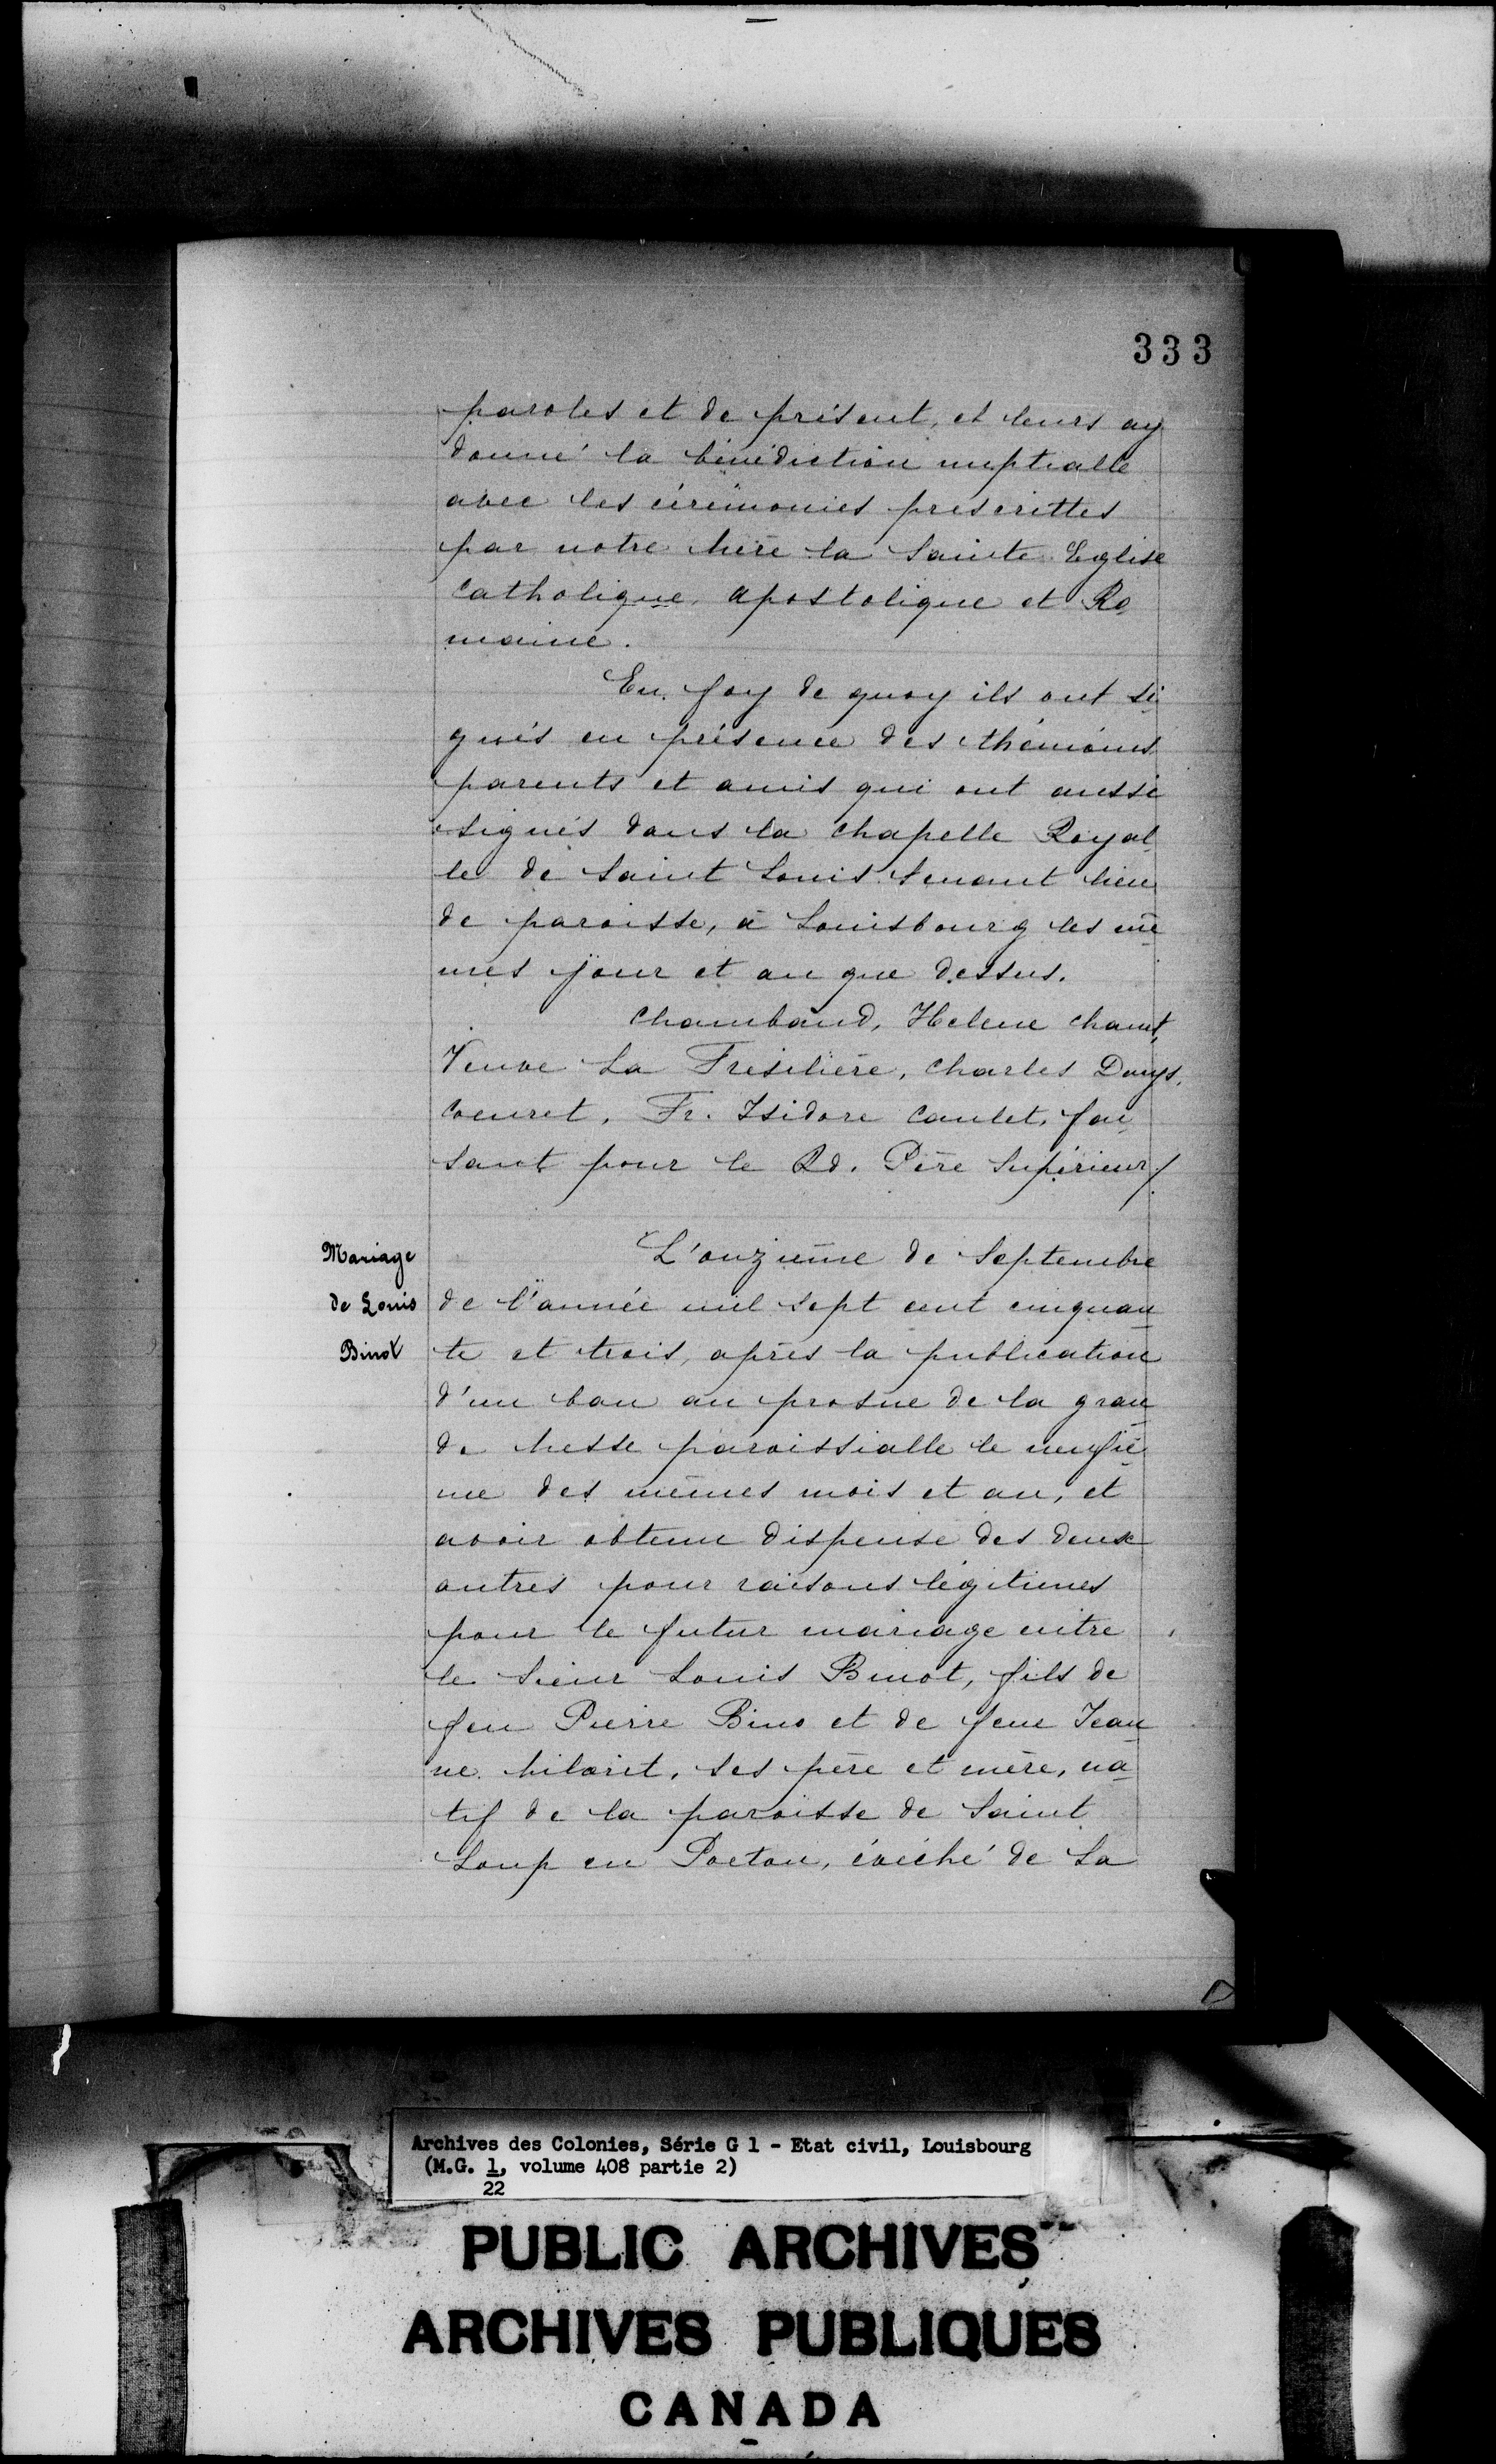 333
paroles et de présent, et leurs ay
donné la bénédiction nuptialle
avec les cérémonies prescrittes
par notre Mère la Sainte Eglise
Catholique, apostolique et Ro
maine.
En foy de quoy ils ont si
gnés en présence des thémoins
parents et amis qui ont aussi
signés dans la chapelle Royal
le de Saint Louis tenant lieu
de paroisse, à Louisbourg les mê
mes jour et an que dessus.
Chambaud, Helene
Veuve La Fresilière, Charles
Coeuret, Fr. Isidore Caulet, fai
sant pour le Rd. Père Supérieur/.
Mariage
de Louis
Binot
L'onzième de Septembre
de l'année mil sept cent cinquan
te et trois, après la publication
d'un ban au prosne de la gran
de Messe paroissialle le neufiè
me des mêmes mois et an, et
avoir obtenu dispense des deux
autres pour raisons légitimes
pour le futur mariage entre
le Sieur Louis Binot, fils de
feu Pierre Bino et de feue Jean
ne Milorit, ses père et mère, na
tif de la paroisse de Saint
Loup en Poetou, évéché de La
Archives des Colonies, Série G 1 - Etat civil, Louisbourg
(M.G. 1, volume 408 partie 2)
22
PUBLIC ARCHIVES
ARCHIVES PUBLIQUES
CANADA